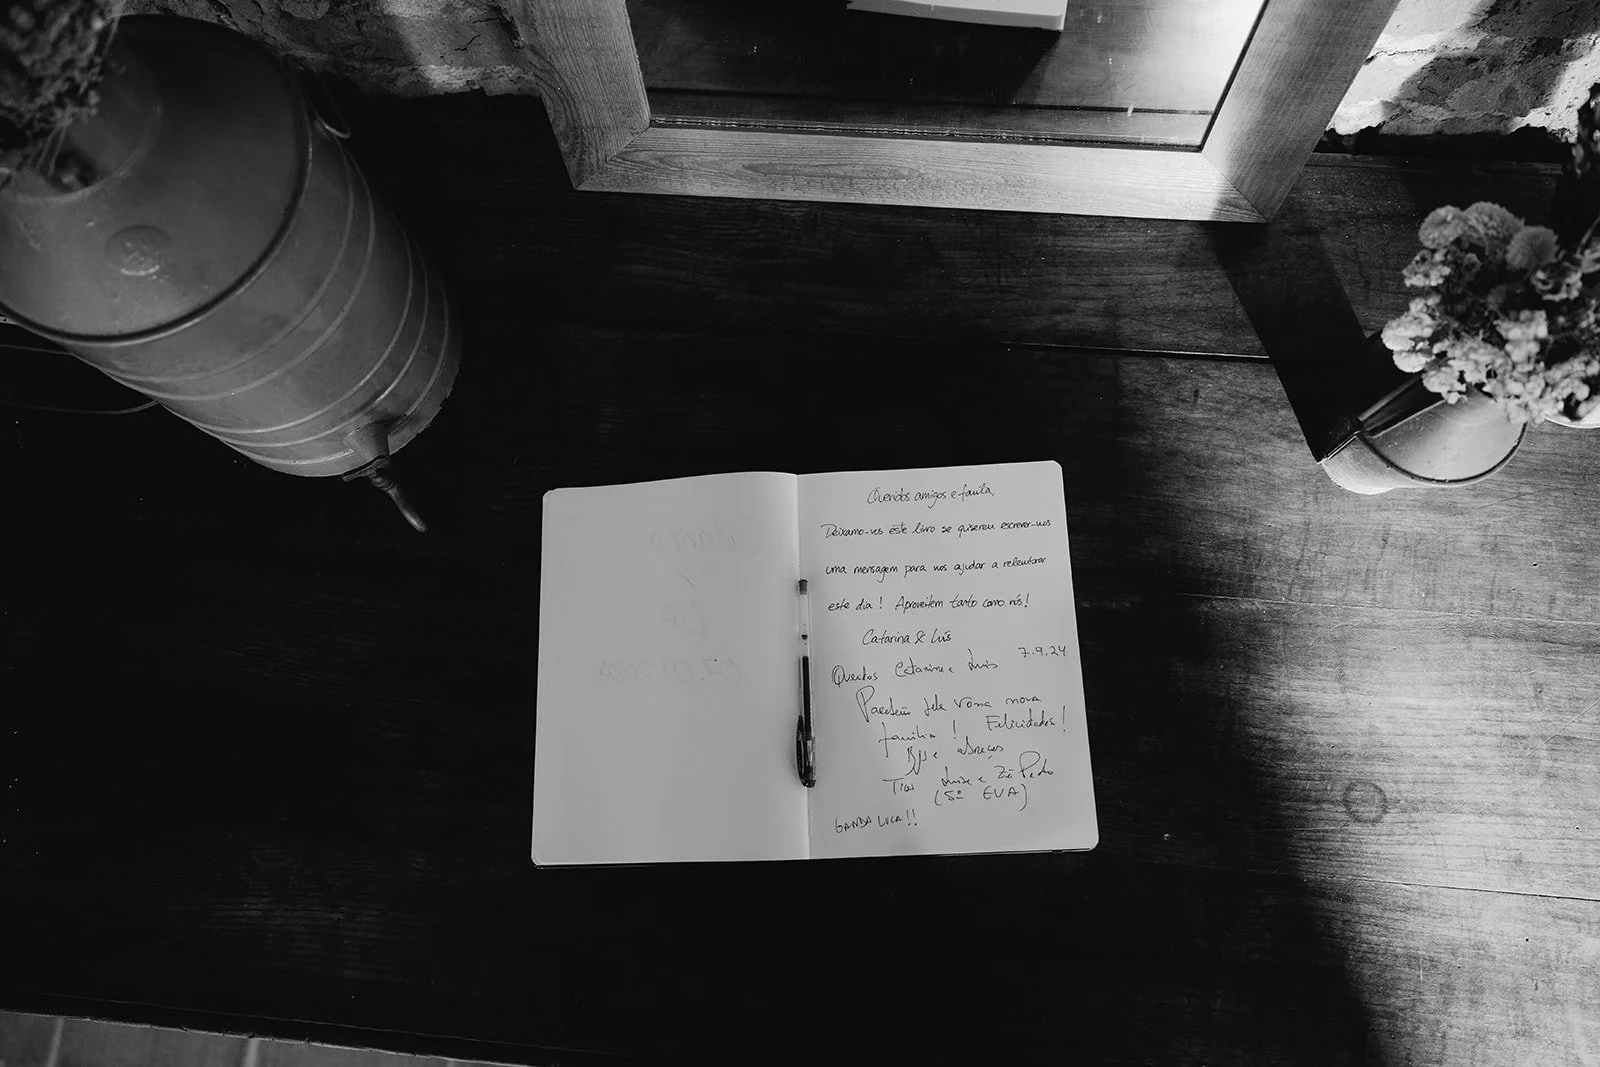 Queridos amigos e família,
Deixamo-vos este livro se quiserem escrever-nos
uma mensagem para nos ajudar a relembrar
este dia! Aproveitem tanto como nós!
Catarina & Luís
7.9.24
Queridos Catarina e Luís
Parabéns pela vossa nova
família! Felicidades!
Bjs e abraços
Tios Luísa e Zé Pedro
(5º EVA)
GANDA LUCA!!
Catarina
&
Luís
07.09.2024